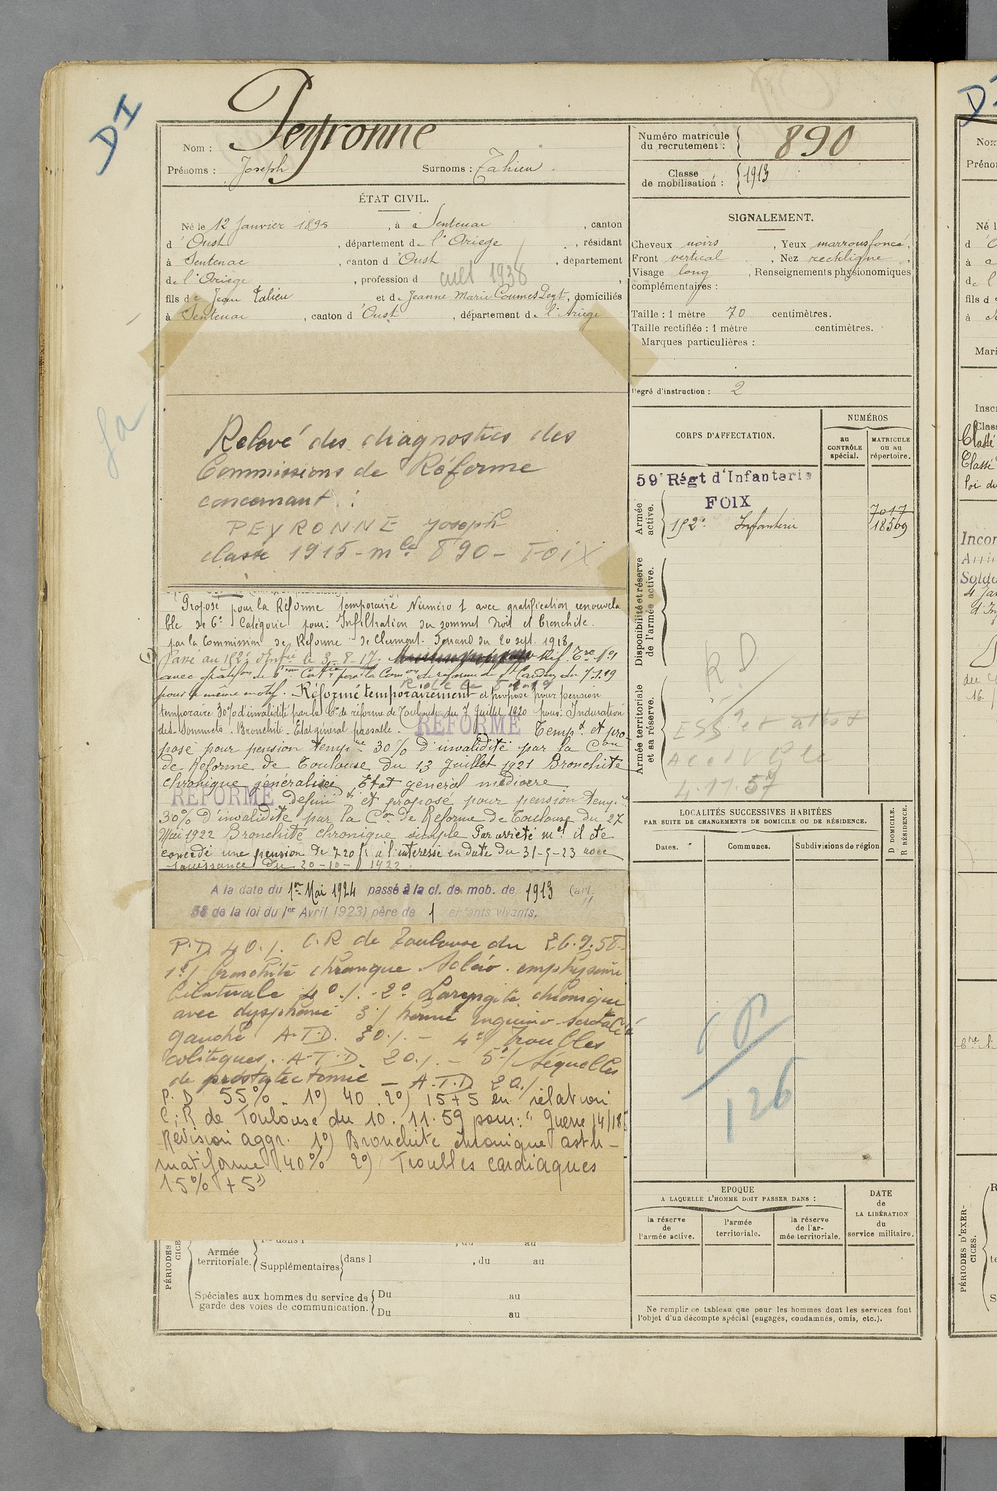 DI
Peyronne
Nom :
Prénoms : Joseph Surnoms : Tahieu.
Numéro matricule du recrutement : 890
Classe de mobilisation : 1913
ÉTAT CIVIL.
Né le 12 Janvier 1895, à Sentenac, canton
d'Oust, département de l'Ariège, résidant
à Sentenac, canton d'Oust, département
de l'Ariège, profession de cult 1938
fils de Jean Tahieu et de Jeanne Marie Coumes, domiciliés
à Sentenac, canton d'Oust, département de l'Ariège
SIGNALEMENT.
Cheveux noirs, Yeux marrons foncé,
Front vertical, Nez rectiligne,
Visage long, Renseignements physionomiques
complémentaires :
Taille : 1 mètre 70 centimètres.
Taille rectifiée : 1 mètre centimètres.
Marques particulières :
Degré d'instruction : 2
Relevé des diagnostics des
Commissions de Réforme
concernant :
PEYRONNE Joseph
classe 1915 - mle 890 - FOIX
CORPS D'AFFECTATION.
NUMÉROS
au CONTRÔLE spécial.
MATRICULE ou au répertoire.
59e Régt d'Infanterie
FOIX
Armée active.
7017
182e Infanterie 18569
Disponibilité et réserve de l'armée active.
Armée territoriale et sa réserve.
RD
4.11.57
Proposé pour la Réforme temporaire Numéro 1 avec gratification renouvela
ble de 6e Catégorie pour: Infiltration du sommet droit et bronchite.
par la Commission de Réforme de Clermont-Ferrand du 20 sept. 1918.
Passé au 182e d'Infie le 3-8-17. Réf. Tre no 1
pour le même motif. Réformé temporairement et proposé pour pension
temporaire 30% d'invalidité par la Con de réforme de Toulouse du 7 Juillet 1920 pour: Induration
des Sommets. Bronchite. Etat général passable. REFORMÉ Tempre et pro
posé pour pension tempre 30% d'invalidité par la Con
de Réforme de Toulouse du 13 Juillet 1921 Bronchite
chronique généralisée, Etat général médiocre
REFORMÉ définif et proposé pour pension temp.
30% d'invalidité par la Con de Réforme de Toulouse du 27
Mai 1922 Bronchite chronique simple Par arrêté mel il été
concédé une pension de 720 f à l'intéressé en date du 31-5-23 avec
jouissance du 20-10-1922
A la date du 1er Mai 1924 passé à la cl. de mob. de 1913 (art.
58 de la loi du 1er Avril 1923) père de 1 enfants vivants.
P.D 40% C.R de Toulouse du 26.9.58
1º/ bronchite chronique scléro-emphysème
bilatérale 40% - 2º Laryngite chronique
avec dysphonie 3/ hernie inguino-scrotale
gauche A.T.D. 30% - 4º Troubles
colitiques. A.T.D. 20% - 5º/ Séquelles
de prostatectomie - A.T.D 20%
P.D 55% 1º) 40 2º) 15+5 en relation
C.R de Toulouse du 10.11.59 pour: "Guerre 14/18"
Révision aggr. 1º) Bronchite chronique asth-
matiforme 40% 2º) Troubles cardiaques
15% + 5
LOCALITÉS SUCCESSIVES HABITÉES
PAR SUITE DE CHANGEMENTS DE DOMICILE OU DE RÉSIDENCE.
Dates. Communes. Subdivisions de région D DOMICILE. R RÉSIDENCE.
126
ÉPOQUE
A LAQUELLE L'HOMME DOIT PASSER DANS :
la réserve de l'armée active.
l'armée territoriale.
la réserve de l'armée territoriale.
DATE de LA LIBÉRATION du service militaire.
PÉRIODES
Armée territoriale. Supplémentaires dans l , du au
Spéciales aux hommes du service de garde des voies de communication. Du au
Du au
Ne remplir ce tableau que pour les hommes dont les services font
l'objet d'un décompte spécial (engagés, condamnés, omis, etc.).
PÉRIODES D'EXERCICES.